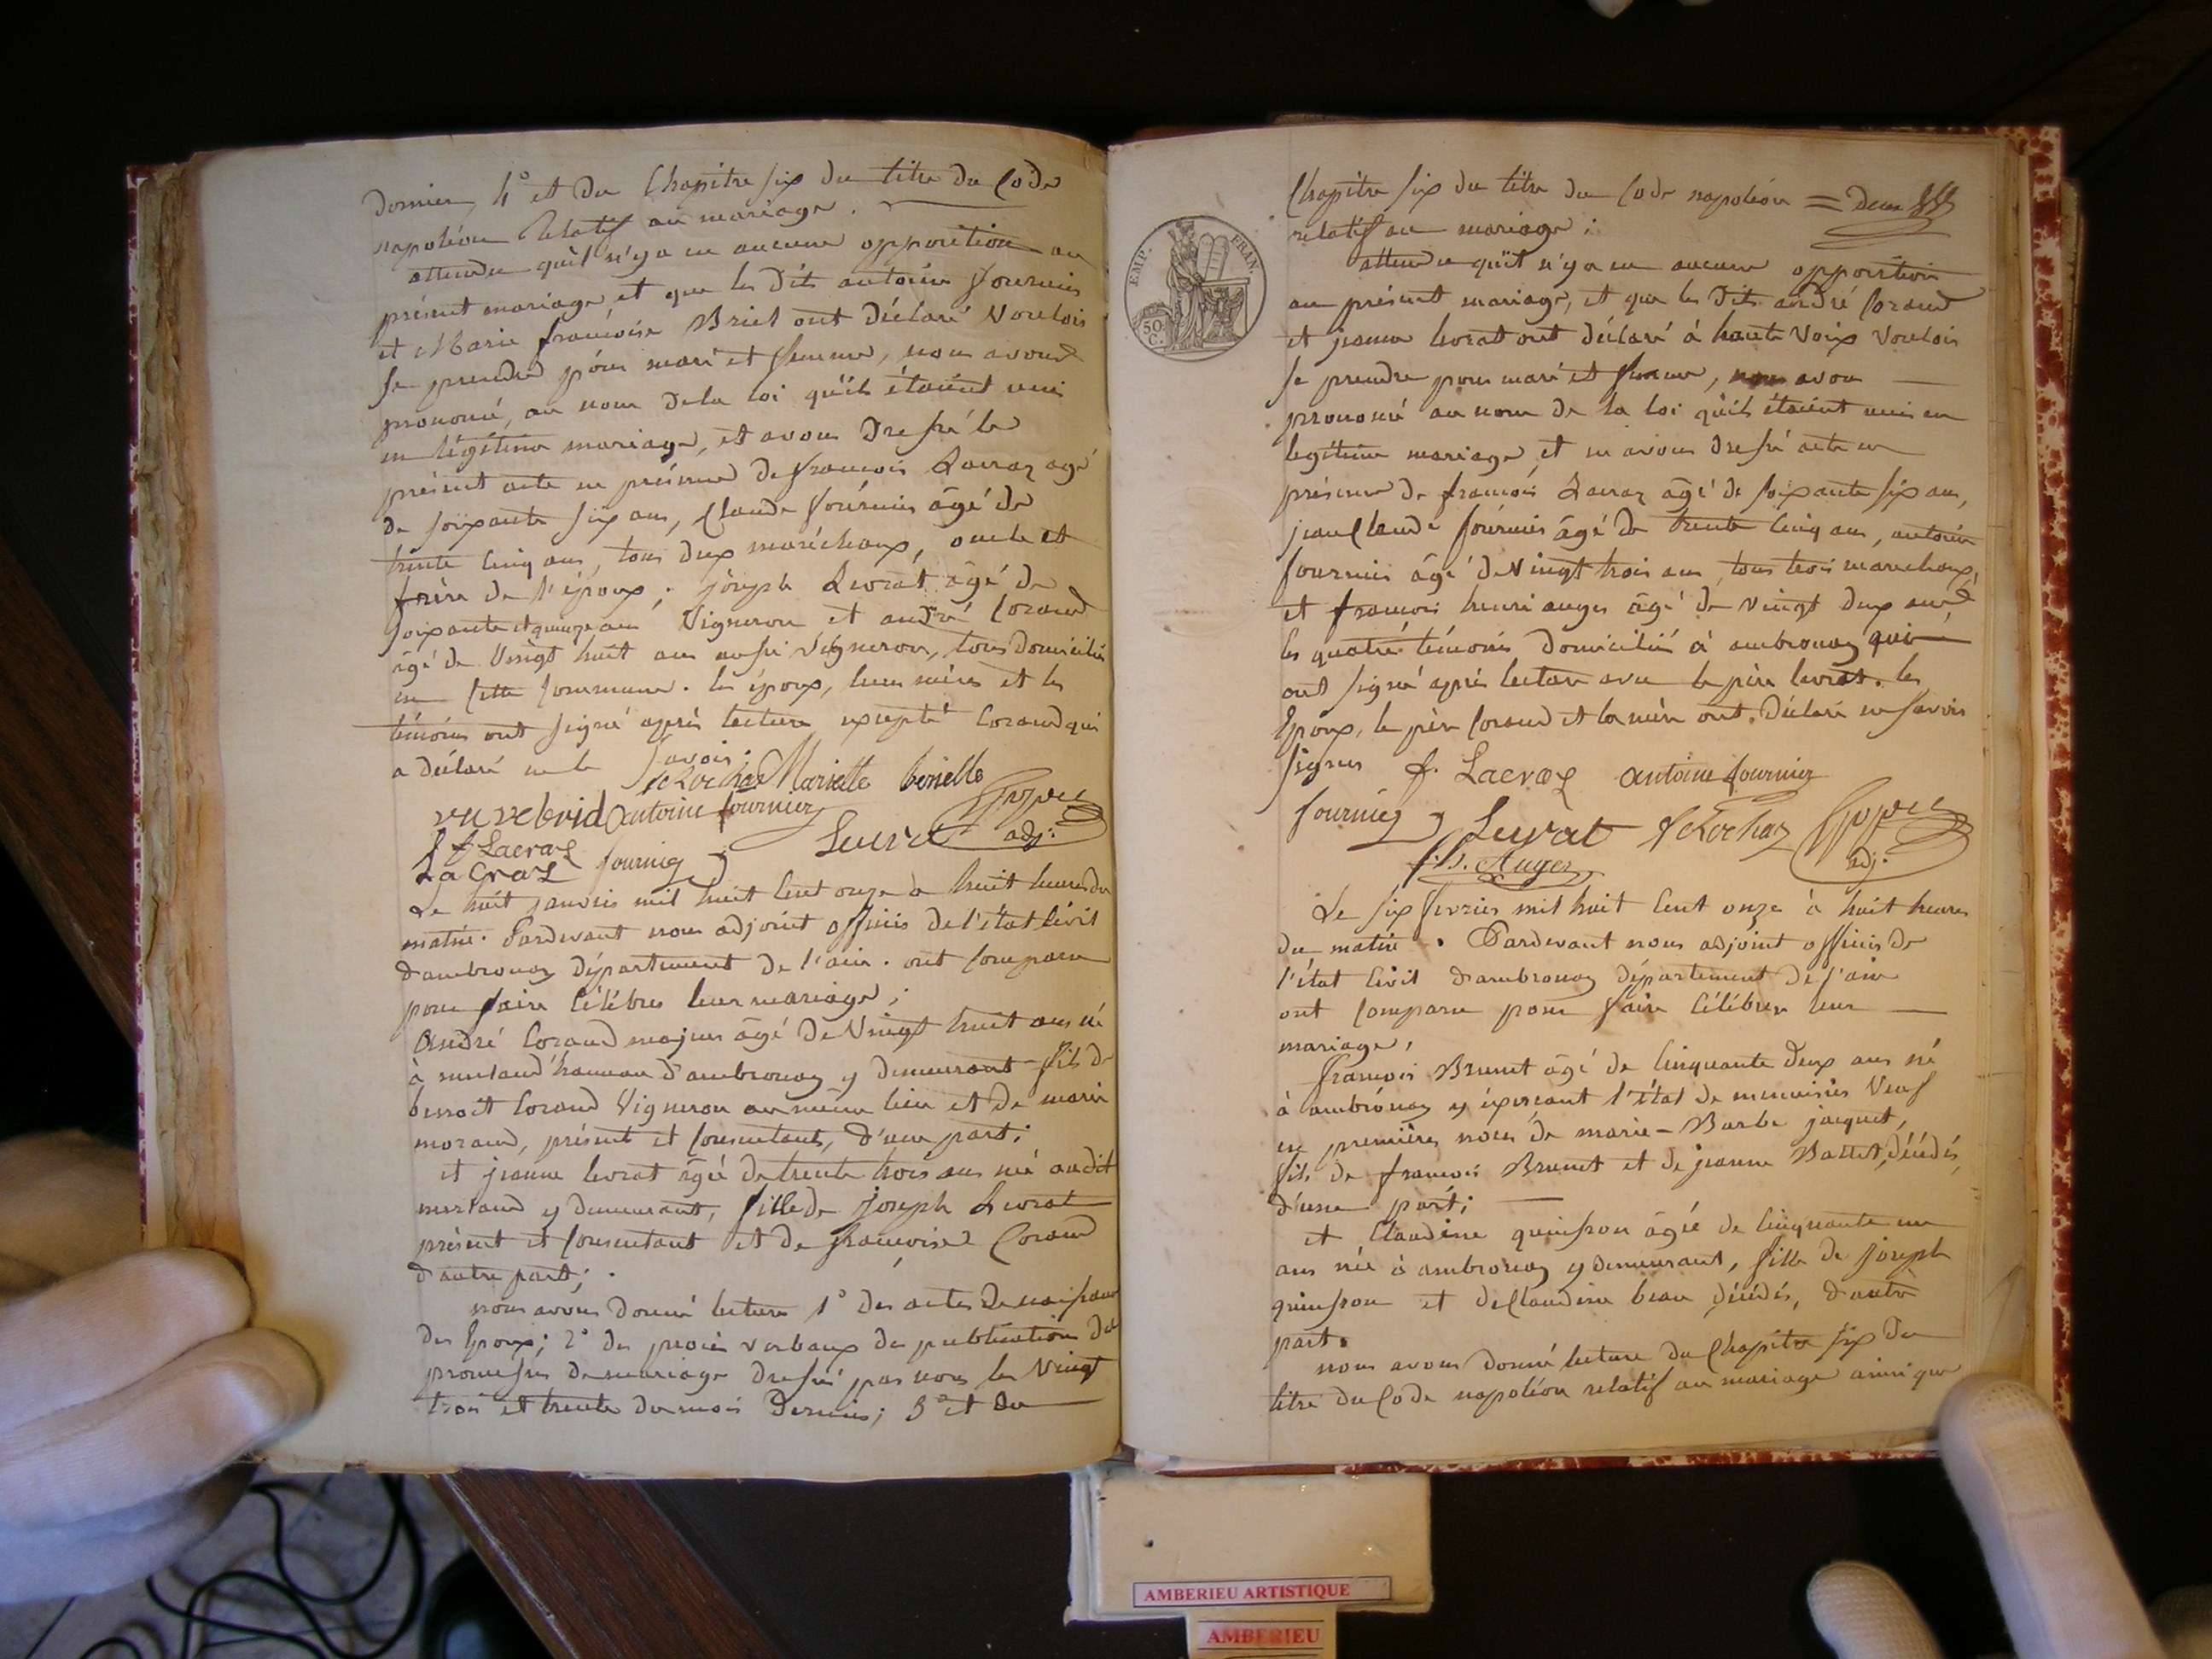 dernier, 4° et du Chapitre six du titre du Code
napoléon Relatif au mariage.
attendu qu'il n'y a eu aucune opposition au
présent mariage, et que les dits antoine fournier
et Marie françoise Briel ont déclaré Vouloir
se prendre pour mari et femme, nous avons
prononcé, au nom de la loi qu'ils étaient unis
en légitime mariage, et avons dressé le
présent acte en présence de françois Lacraz agé
de soixante six ans, Claude fournier âgé de
trente cinq ans, tous deux maréchaux, oncle et
frère de l'époux; joseph Levrat âgé de
soixante et quinze ans Vigneron et andré Corand
âgé de Vingt huit ans aussi Vigneron, tous domiciliés
en cette Commune. les époux, leurs mères et les
témoins ont signé après lecture excepté Corand qui
a déclaré ne le savoir.
Mariette
antoine fournier
f Lacraz fournier Levrat adj:
LaCraz
Le huit janvier mil huit Cent onze à huit heures du
matin. Pardevant nous adjoint officier de l'état Civil
d'ambronay département de l'ain. ont Comparu
pour faire Célébrer leur mariage;
André Corand majeur âgé de Vingt huit ans né
à merland hameau d'ambronay y demeurant fils de
benoit Corand Vigneron au même lieu et de marie
morand, présent et Consentants, d'une part;
et jeanne levrat âgée de trente trois ans née audit
merland y demeurant, fille de joseph Levrat
présent et Consentant et de françoise Corand
d'autre part;
nous avons donné lecture 1° des actes de naissance
des Epoux; 2° des procès verbaux de publication de
promesses de mariage dressés par nous les Vingt
trois et trente du mois dernier; 3° et du
Chapitre six du titre du Code napoléon = deux
relatif au mariage;
EMP. FRAN.
50
C.
attendu qu'il n'y a eu aucune opposition
au présent mariage, et que les dits andré Corand
et jeanne levrat ont déclaré à haute Voix Vouloir
se prendre pour mari et femme, nous avons
prononcé au nom de la loi qu'ils étaient unis en
légitime mariage, et en avons dressé acte en
présence de françois Lacraz âgé de soixante six ans,
jean Claude fournier âgé de trente cinq ans, antoine
fournier âgé de Vingt trois ans, tous trois maréchaux,
et françois henri auger âgé de vingt deux ans,
les quatre témoins domiciliés à ambronay qui
ont signé après lecture avec le père levrat. les
Epoux, le père Corand et la mère ont déclaré ne savoir
signer f. Lacraz antoine fournier
fournier Levrat
f.h. Auger adj.
Le six février mil huit Cent onze à huit heures
du matin. Pardevant nous adjoint officier de
l'état Civil d'ambronay département de l'ain
ont Comparu pour faire Célébrer leur
mariage,
françois Brunet âgé de Cinquante deux ans né
à ambronay y éxerçant l'état de menuisier Veuf
en premières noces de marie-Barbe jacquet,
fils de françois Brunet et de jeanne Battet, décédés,
d'une part;
et Claudine quinsson âgée de Cinquante un
ans née à ambronay y demeurant, fille de joseph
quinsson et de Claudine beau décédés, d'autre
part.
nous avons donné lecture du Chapitre six du
titre du Code napoléon relatif au mariage ainsi que
AMBERIEU ARTISTIQUE
AMBERIEU